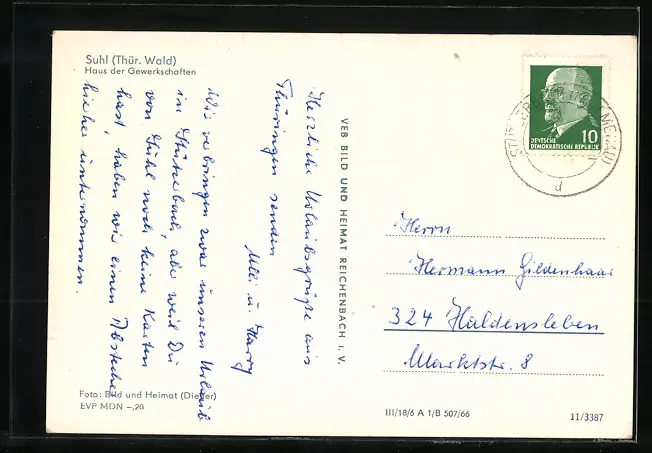 Suhl (Thür. Wald)
Haus der Gewerkschaften
Herzliche Urlaubsgrüße aus
Thüringen senden
Milli u. Harry
Wir verbringen zwar unseren Urlaub
in Stützerbach, aber weil Du
von Suhl noch keine Karten
hast, haben wir einen Abstecher
hierher unternommen.
Foto: Bild und Heimat (Dieger)
EVP MDN –,20
VEB BILD UND HEIMAT REICHENBACH i. V.
10
DEUTSCHE
DEMOKRATISCHE REPUBLIK
d
Herrn
Hermann Gildenhaar
324 Haldensleben
Marktstr. 8
III/18/6 A 1/B 507/66
11/3387